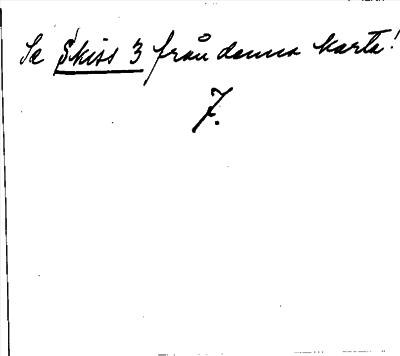 Se Skiss 3 från denna karta!
7.